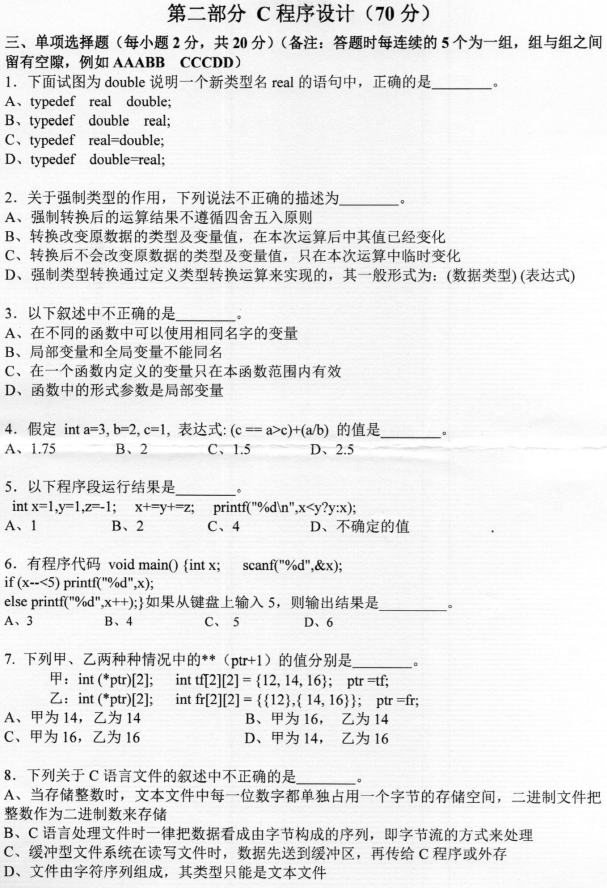 第二部分 C 程序设计（70 分）
三、单项选择题（每小题 2 分，共 20 分）（备注：答题时每连续的 5 个为一组，组与组之间
留有空隙，例如 AAABB CCCDD）
1．下面试图为 double 说明一个新类型名 real 的语句中，正确的是________。
A、typedef real double;
B、typedef double real;
C、typedef real=double;
D、typedef double=real;
2．关于强制类型的作用，下列说法不正确的描述为________。
A、强制转换后的运算结果不遵循四舍五入原则
B、转换改变原数据的类型及变量值，在本次运算后中其值已经变化
C、转换后不会改变原数据的类型及变量值，只在本次运算中临时变化
D、强制类型转换通过定义类型转换运算来实现的，其一般形式为：(数据类型) (表达式)
3．以下叙述中不正确的是________。
A、在不同的函数中可以使用相同名字的变量
B、局部变量和全局变量不能同名
C、在一个函数内定义的变量只在本函数范围内有效
D、函数中的形式参数是局部变量
4．假定 int a=3, b=2, c=1, 表达式: (c == a>c)+(a/b) 的值是________。
A、1.75 B、2 C、1.5 D、2.5
5．以下程序段运行结果是________。
int x=1,y=1,z=-1; x+=y+=z; printf("%d\n",x<y?y:x);
A、1 B、2 C、4 D、不确定的值
6．有程序代码 void main() {int x; scanf("%d",&x);
if (x--<5) printf("%d",x);
else printf("%d",x++);}如果从键盘上输入 5，则输出结果是________。
A、3 B、4 C、5 D、6
7. 下列甲、乙两种种情况中的**（ptr+1）的值分别是________。
甲：int (*ptr)[2]; int tf[2][2] = {12, 14, 16}; ptr =tf;
乙：int (*ptr)[2]; int fr[2][2] = {{12},{ 14, 16}}; ptr =fr;
A、甲为 14，乙为 14 B、甲为 16， 乙为 14
C、甲为 16，乙为 16 D、甲为 14， 乙为 16
8．下列关于 C 语言文件的叙述中不正确的是________。
A、当存储整数时，文本文件中每一位数字都单独占用一个字节的存储空间，二进制文件把
整数作为二进制数来存储
B、C 语言处理文件时一律把数据看成由字节构成的序列，即字节流的方式来处理
C、缓冲型文件系统在读写文件时，数据先送到缓冲区，再传给 C 程序或外存
D、文件由字符序列组成，其类型只能是文本文件